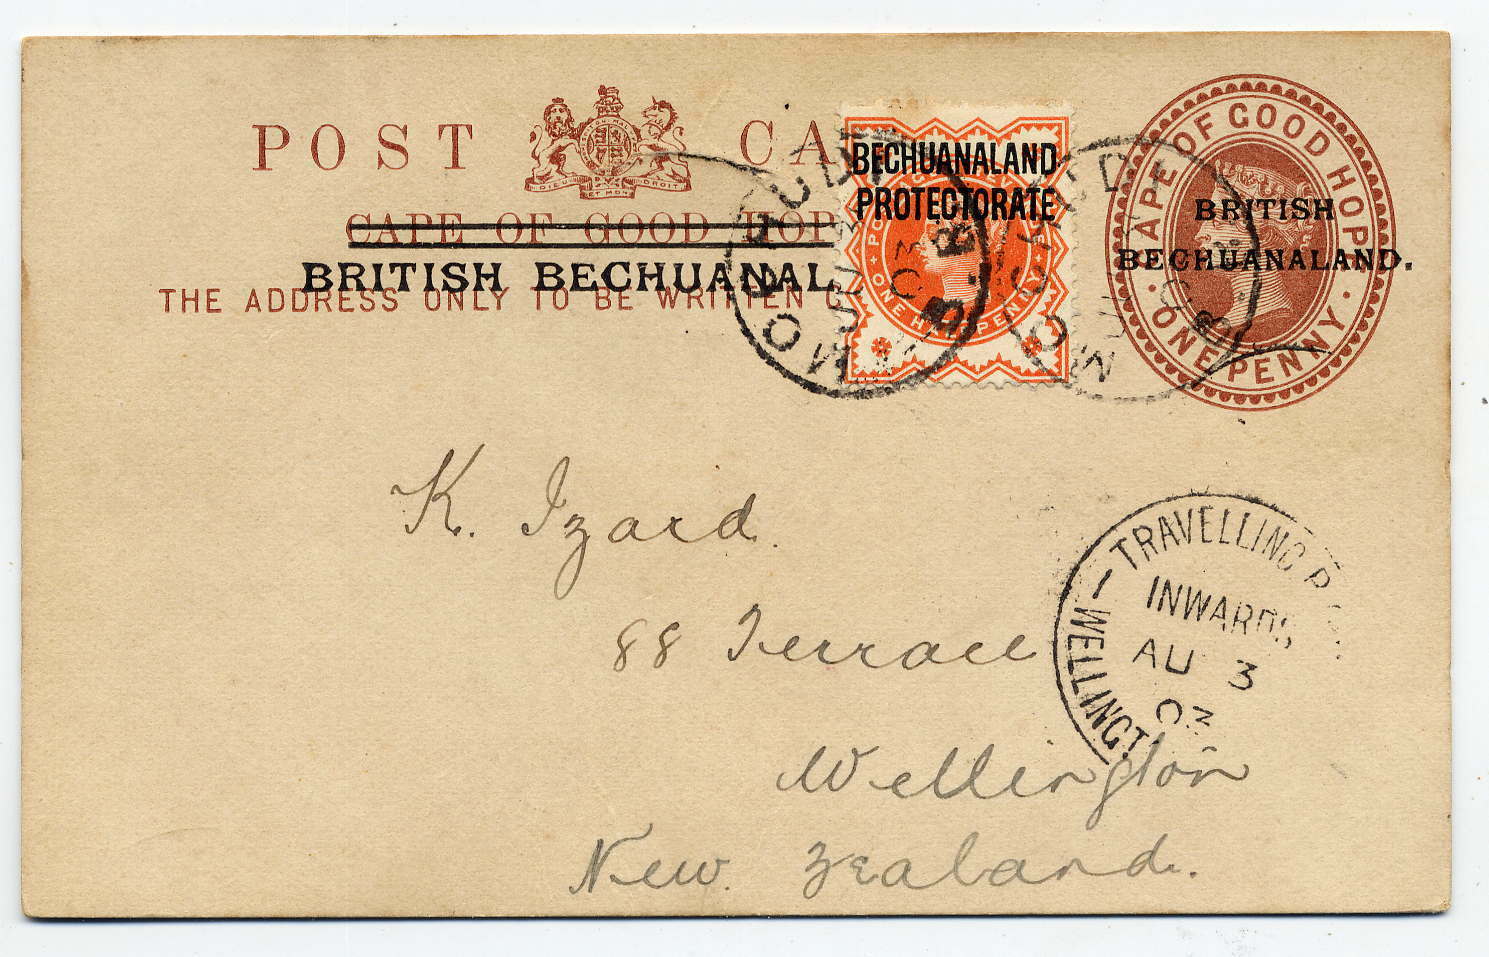 POST CA
DIEU ET MON DROIT
CAPE OF GOOD HOP
BRITISH BECHUANAL
THE ADDRESS ONLY TO BE WRITTEN
BECHUANALAND
PROTECTORATE
ONE HALFPENNY
MOCHUDI
03
B.B
MOCHUDI
CAPE OF GOOD HOPE
BRITISH
BECHUANALAND.
ONE PENNY
K. Izard.
88 Terrace
Wellington
New Zealand.
TRAVELLING P
INWARDS
AU 3
03
WELLINGT